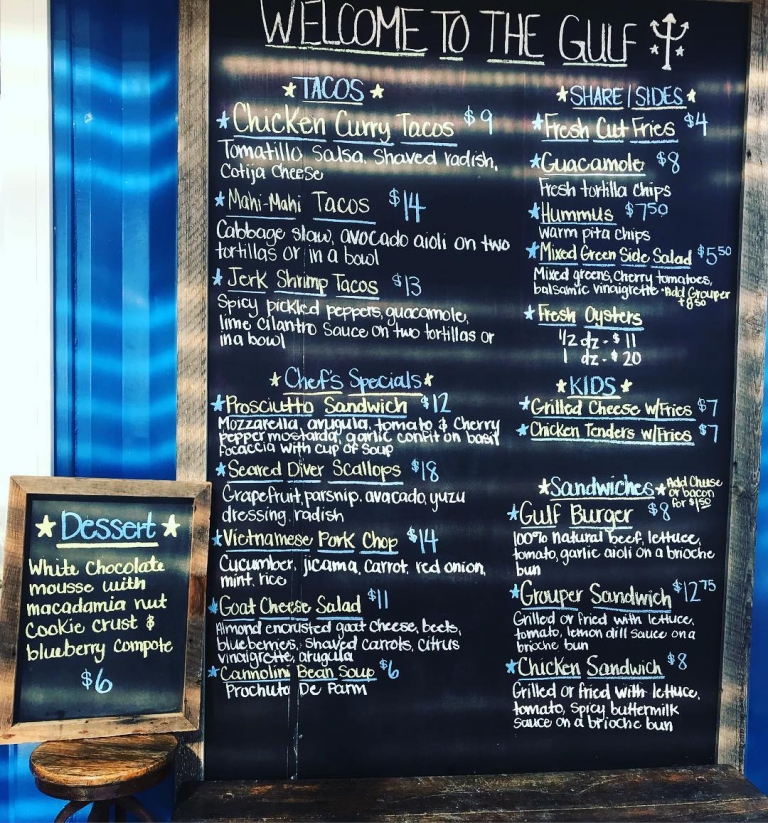 WELCOME TO THE GULF
TACOS
Chicken Curry Tacos $9
Tomatillo Salsa, Shaved radish,
Cotija Cheese
Mahi-Mahi Tacos $14
Cabbage slaw, avocado aioli on two
tortillas or in a bowl
Jerk Shrimp Tacos $13
Spicy pickled peppers, guacamole,
lime cilantro sauce on two tortillas or
in a bowl
Chef's Specials
Prosciutto Sandwich $12
Mozzarella, arugula, tomato & Cherry
pepper mostarda, garlic confit on basil
focaccia with cup of soup
Seared Diver Scallops $18
Grapefruit, parsnip, avocado, yuzu
dressing, radish
Vietnamese Pork Chop $14
Cucumber, jicama, carrot, red onion,
mint, rice
Goat Cheese Salad $11
Almond encrusted goat cheese, beets,
blueberries, shaved carrots, citrus
vinaigrette, arugula
Cannolini Bean Soup $6
Prochuto De Parm
SHARE/SIDES
Fresh Cut Fries $4
Guacamole $8
Fresh tortilla chips
Hummus $7.50
warm pita chips
Mixed Green Side Salad $5.50
Mixed greens, Cherry tomatoes,
balsamic vinaigrette *Add Grouper
+8.50
Fresh Oysters
1/2 dz - $11
1 dz - $20
KIDS
Grilled Cheese w/Fries $7
Chicken Tenders w/Fries $7
Sandwiches
Add Cheese
or bacon
for $1.50
Gulf Burger $8
100% natural beef, lettuce,
tomato, garlic aioli on a brioche
bun
Grouper Sandwich $12.75
Grilled or fried with lettuce,
tomato, lemon dill sauce on a
brioche bun
Chicken Sandwich $8
Grilled or fried with lettuce,
tomato, spicy buttermilk
sauce on a brioche bun
Dessert
White Chocolate
mousse with
macadamia nut
Cookie crust &
blueberry compote
$6